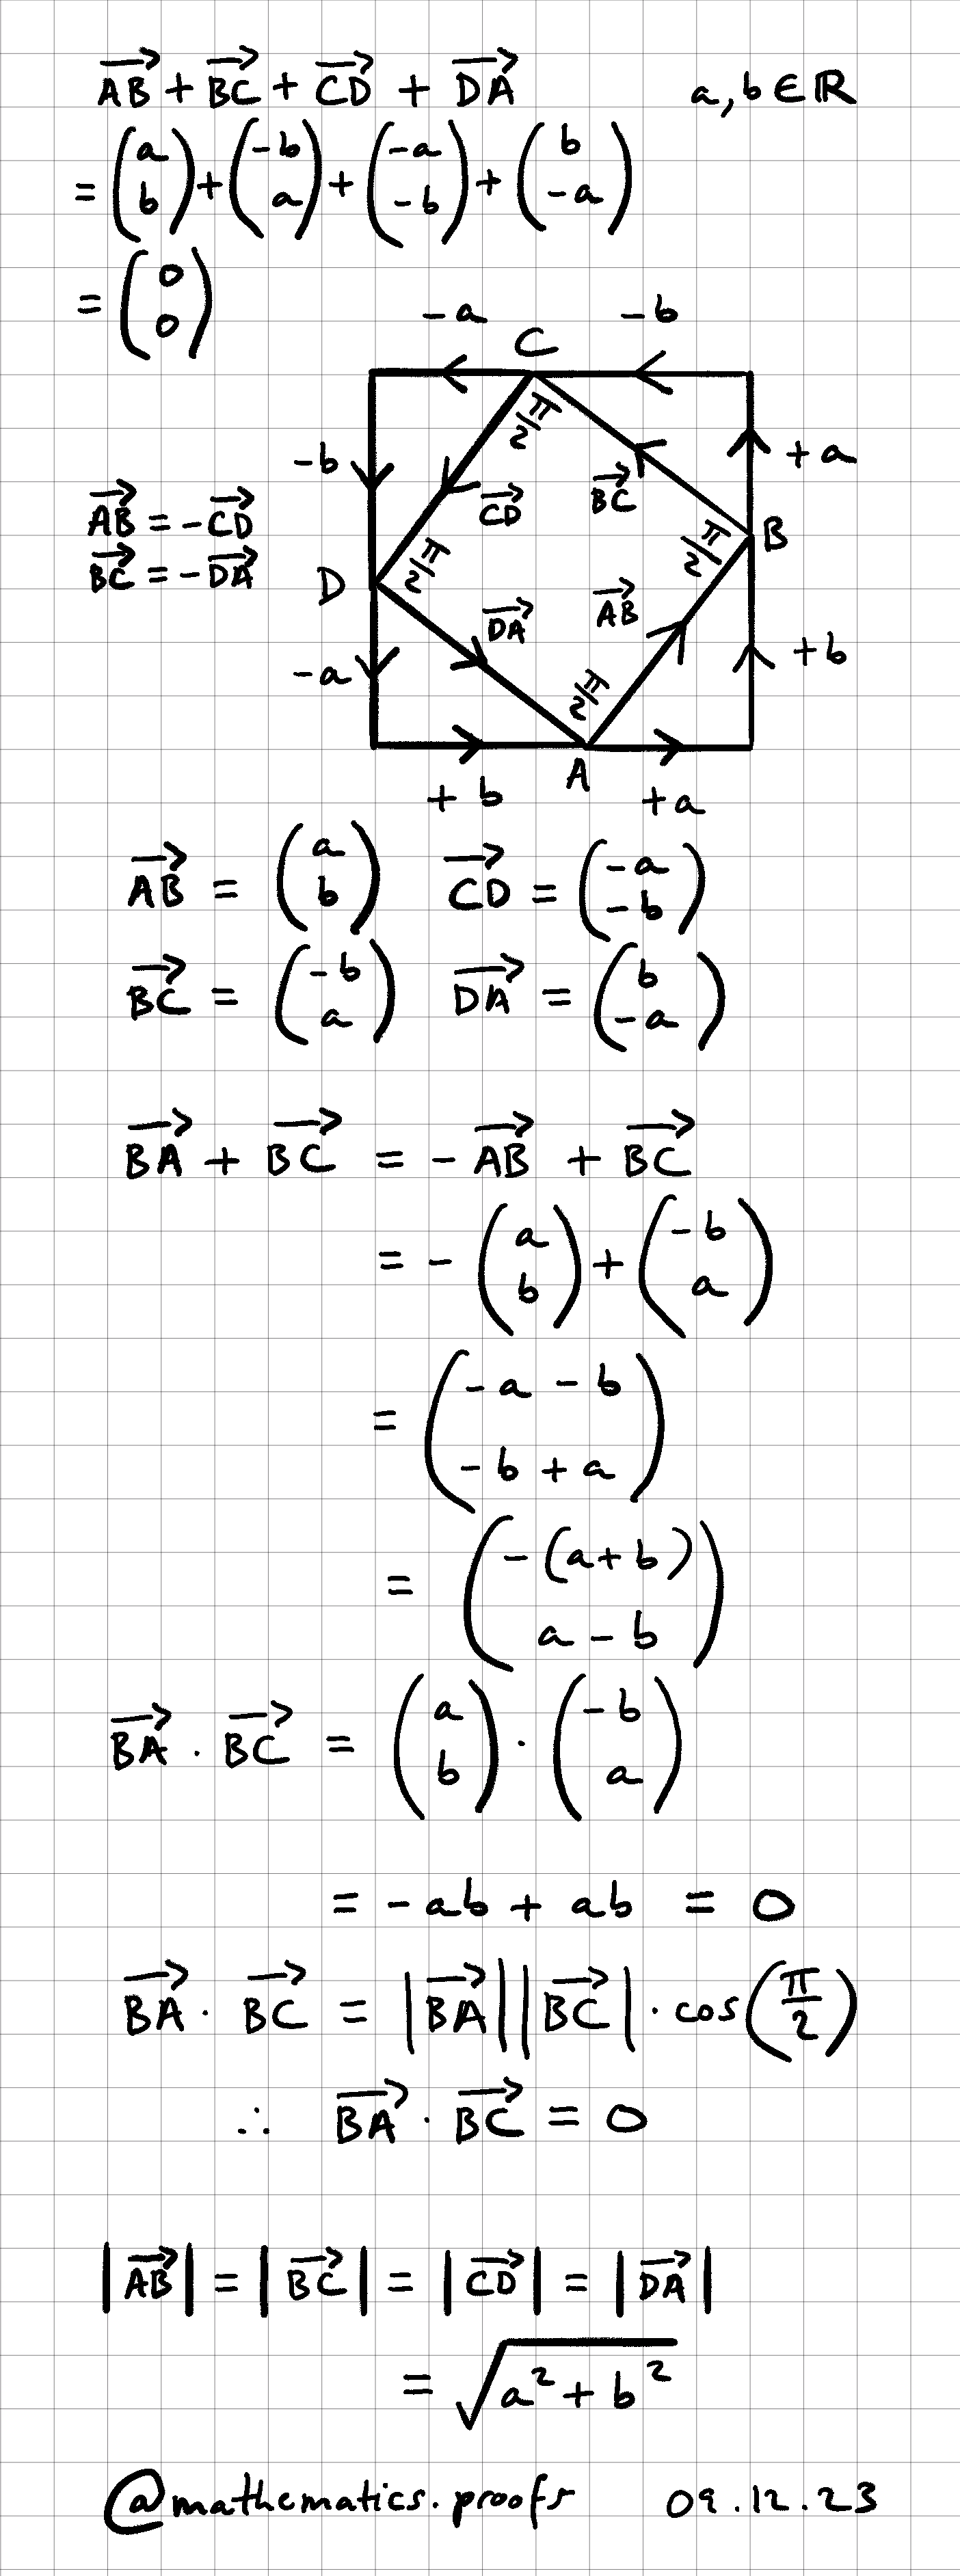 AB⃗ + BC⃗ + CD⃗ + DA⃗ a, b ∈ ℝ
= (a b) + (-b a) + (-a -b) + (b -a)
= (0 0)
-a C -b
-b π/2 +a
AB⃗ = -CD⃗ CD⃗ BC⃗
BC⃗ = -DA⃗ D π/2 π/2 B
DA⃗ AB⃗
-a π/2 +b
+b A +a
AB⃗ = (a b) CD⃗ = (-a -b)
BC⃗ = (-b a) DA⃗ = (b -a)
BA⃗ + BC⃗ = -AB⃗ + BC⃗
= -(a b) + (-b a)
= (-a - b -b + a)
= (-(a+b) a - b)
BA⃗ . BC⃗ = (a b) · (-b a)
= -ab + ab = 0
BA⃗ · BC⃗ = |BA⃗||BC⃗| · cos(π/2)
∴ BA⃗ · BC⃗ = 0
|AB⃗| = |BC⃗| = |CD⃗| = |DA⃗|
= √(a² + b²)
@mathematics.proofs 09.12.23